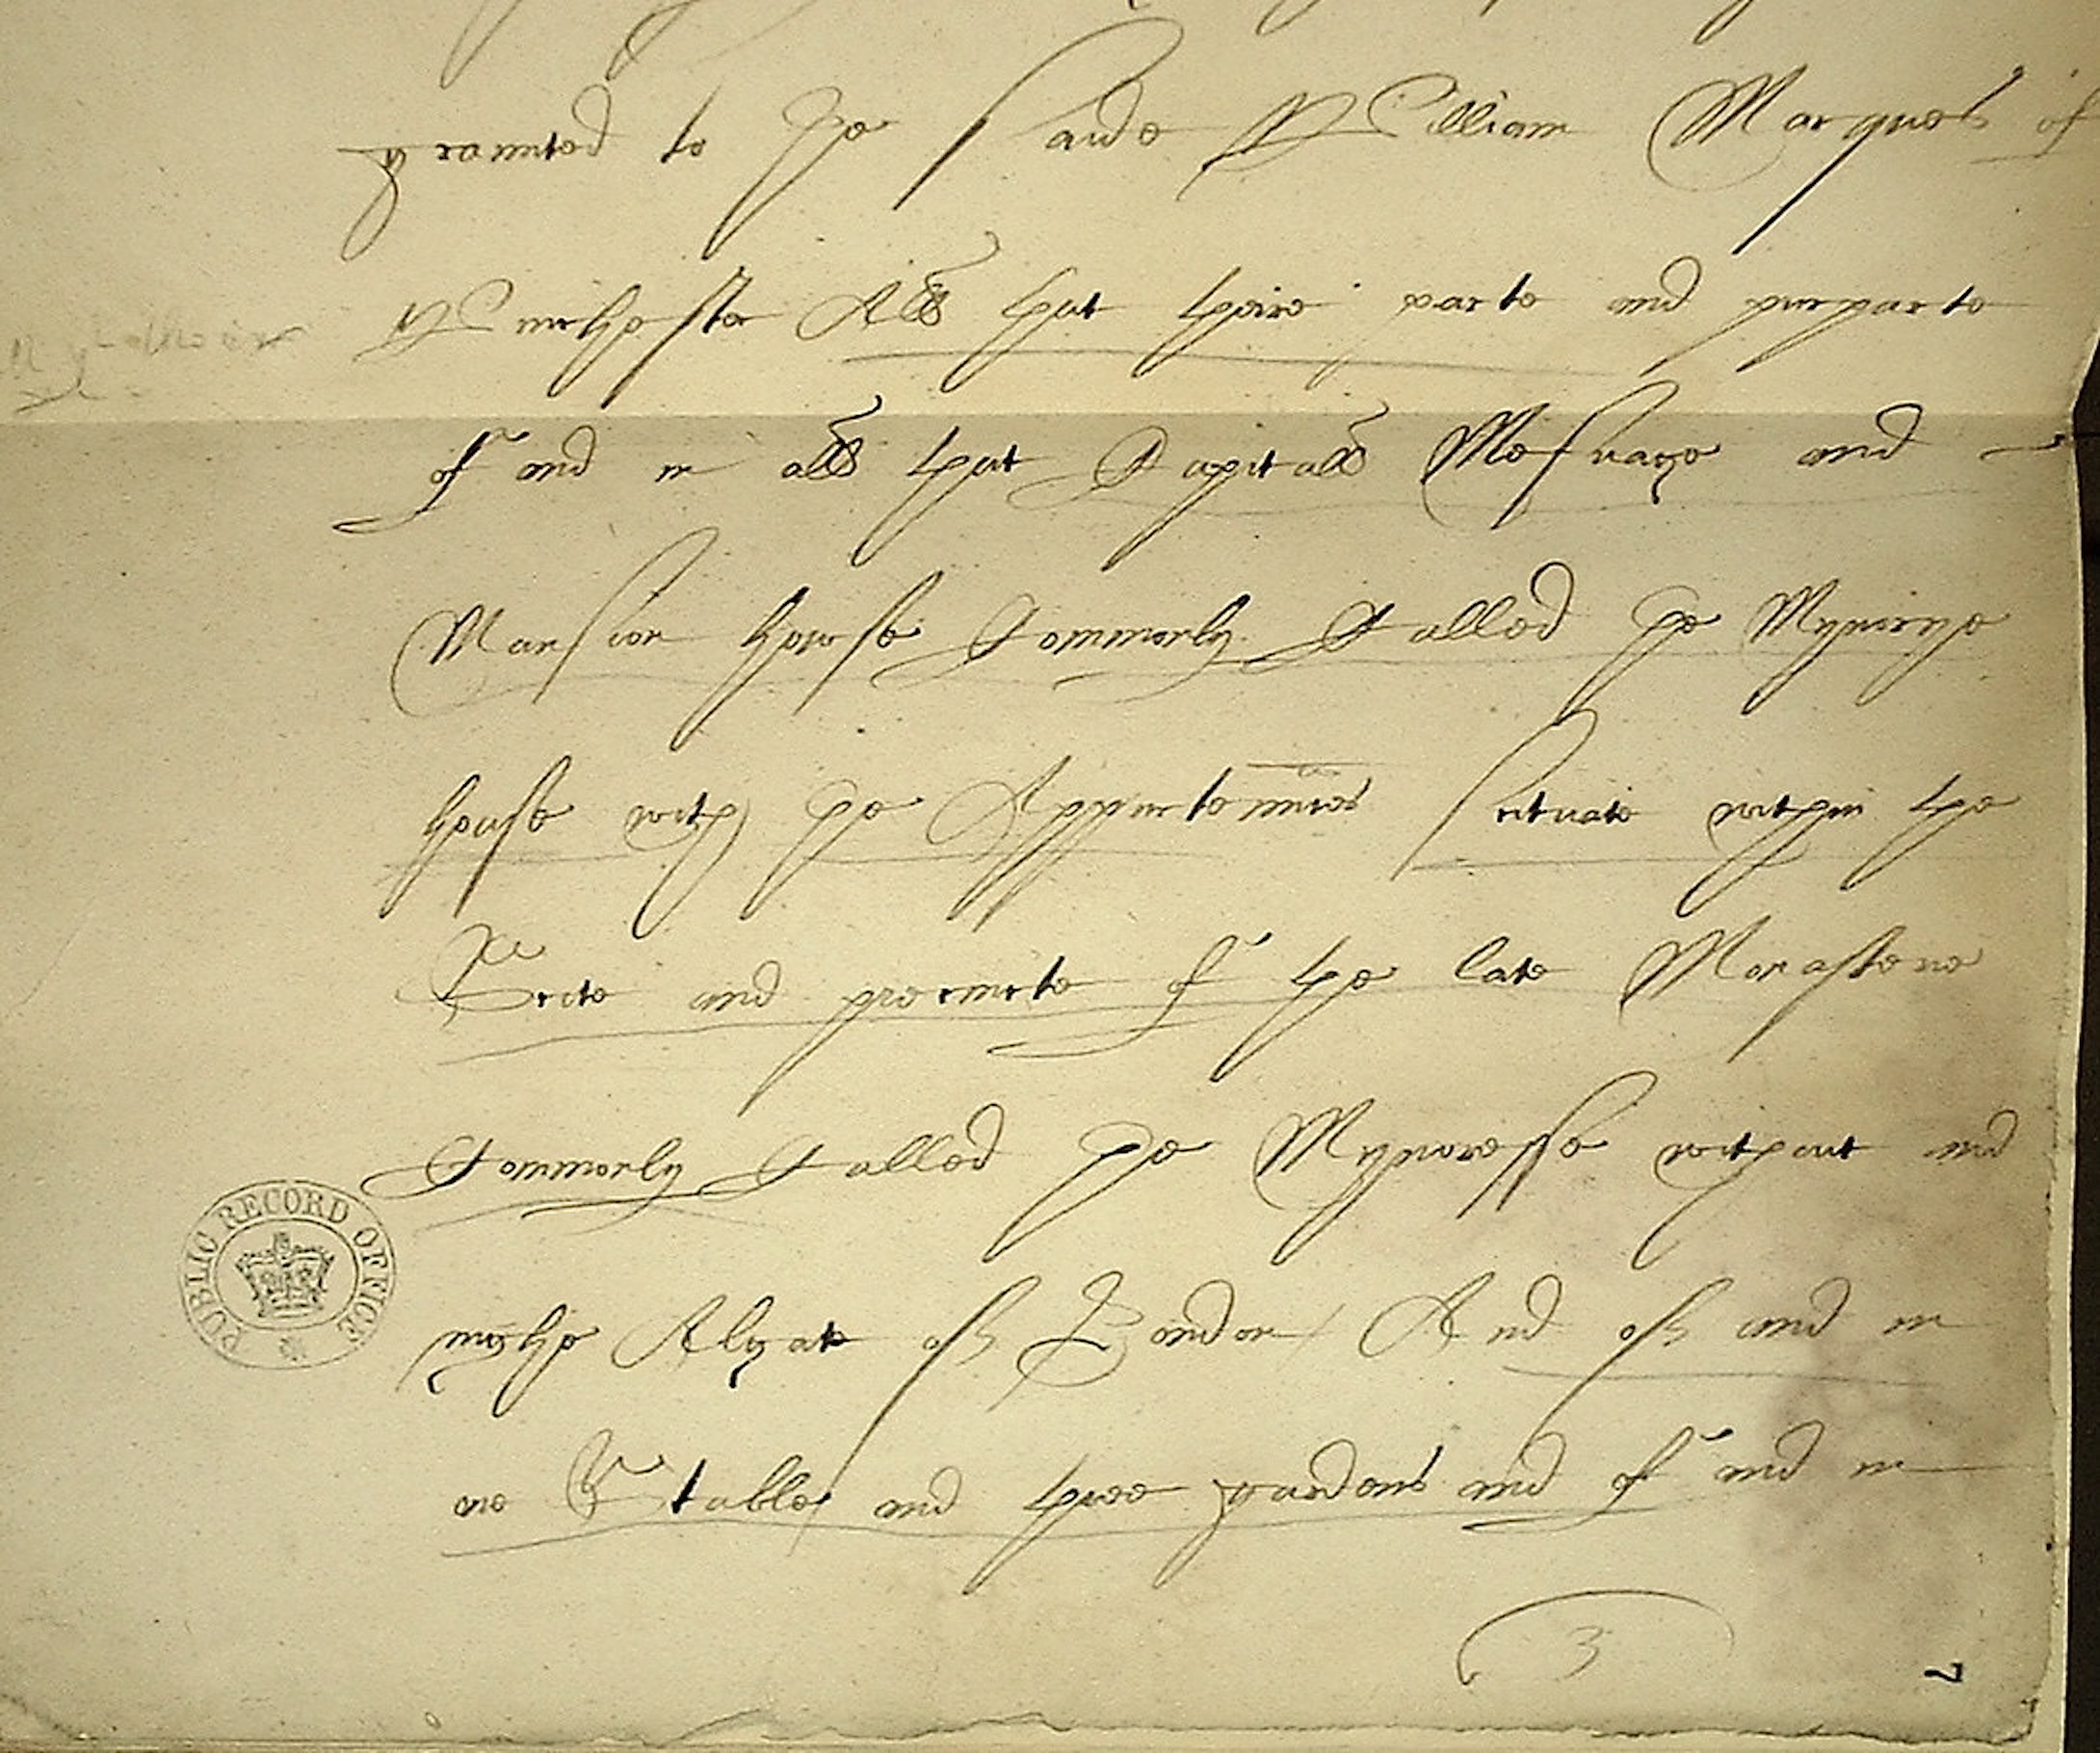 graunted to the saide William Marques of
Winchester All that theire parte and purparte
of and in all that Capitall Messuage and
Mansion howse Commonly Called the Mynorye
house with the Appurtennces Scituate within the
Scite and precincte of the late Monasterie
Commonly Called the Mynoresse without and
nyghe Algate of London And of and in
one Stable and three gardens and of and in
3
7
PUBLIC RECORD OFFICE